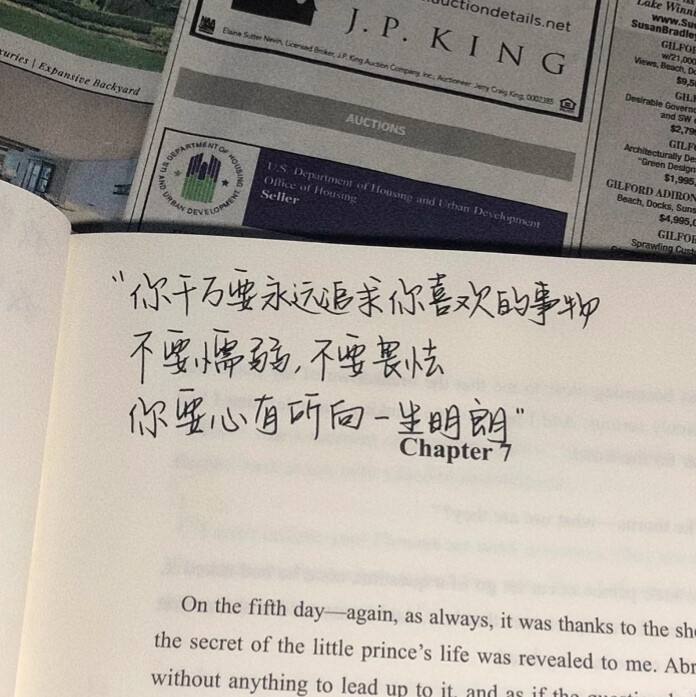 uctiondetails.net
J.P. KING
Elaine Sutter Nevin, Licensed Broker, J.P. King Auction Company, Inc., Auctioneer: Jerry Craig King, 0002385
xuries | Expansive Backyard
AUCTIONS
U.S. DEPARTMENT OF HOUSING AND URBAN DEVELOPMENT
U.S. Department of Housing and Urban Development
Office of Housing
Seller
Lake Winni
www.Su
SusanBradley
GILFO
w/21,000
Views, Beach, Do
$9,5
GIL
Desirable Governo
and SW
$2,79
GILF
Architecturally De
"Green Design
$1,995,
GILFORD ADIRON
Beach, Docks, Suns
$4,995,0
GILFO
Sprawling Cust
"你千万要永远追求你喜欢的事物
不要懦弱,不要畏怯
你要心有所向一生明朗"
Chapter 7
On the fifth day—again, as always, it was thanks to the she
the secret of the little prince's life was revealed to me. Abr
without anything to lead up to it, and as if the question